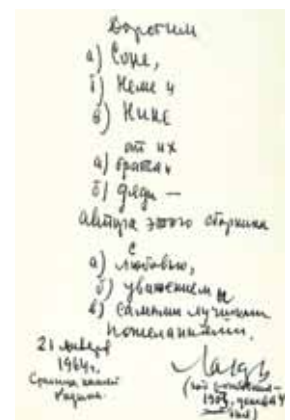 Дорогим
а) Соне,
б) Неме и
в) Нине
от их
а) брата и
б) дяди —
автора этого сборника
с
а) любовью,
б) уважением и
в) самыми лучшими
пожеланиями.
21 января
1964 г.